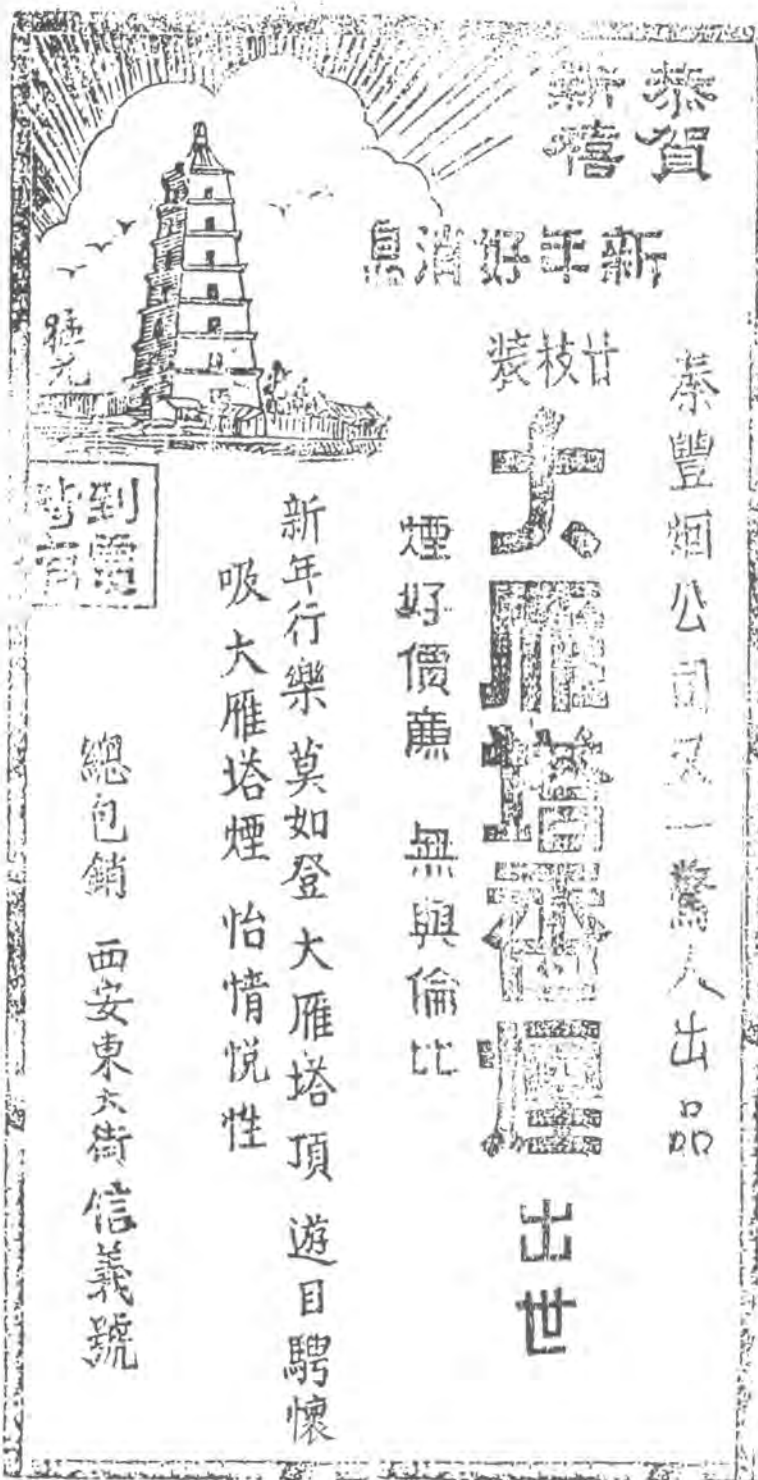 恭賀
新禧
新年好消息
秦豐烟公司又一驚人出品
廿枝裝
大雁塔香煙出世
煙好價廉 無與倫比
新年行樂 莫如登大雁塔頂 遊目騁懷
吸大雁塔煙 怡情悅性
到處
皆有
總包銷 西安東大街信義號